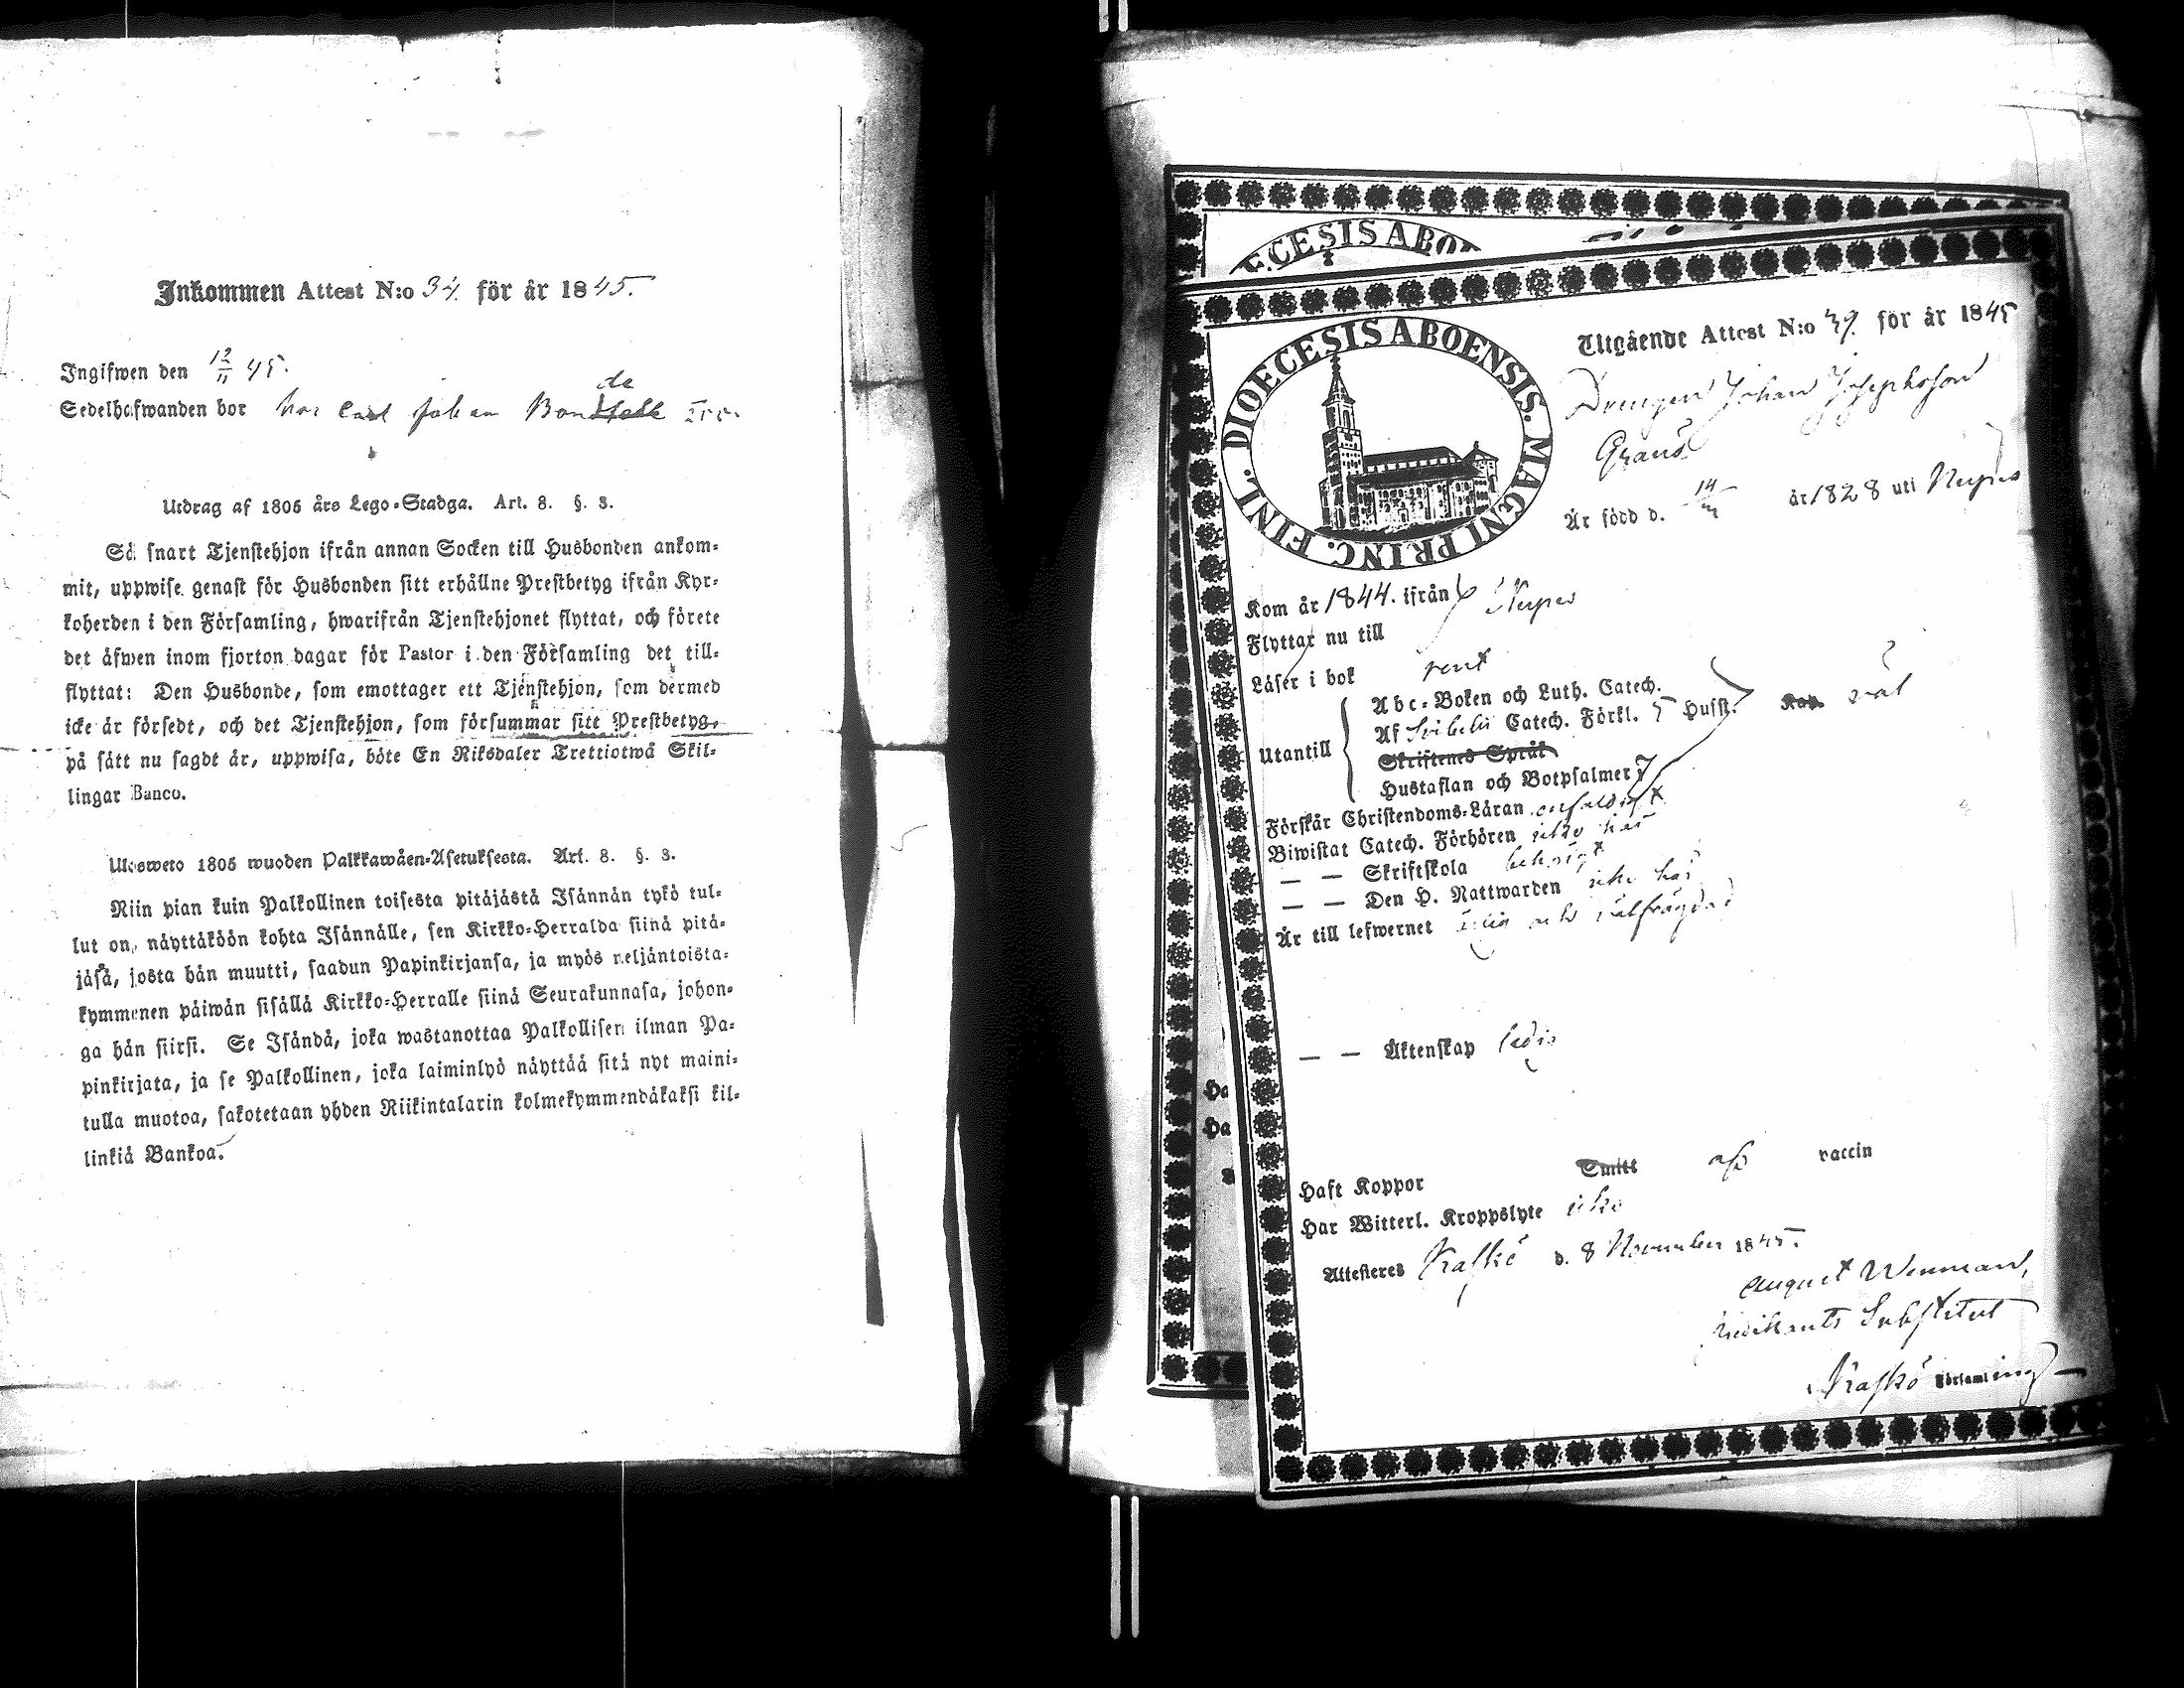 Inkommen Attest N:o 34. för år 1845.
Ingifwen den 12/11 45.
Sedelhafwanden bor hos Carl Johan Bonde
Utdrag af 1805 års Lego-Stadga. Art. 8. §. 3.
Så snart Tjenstehjon ifrån annan Socken till Husbonden ankom-
mit, uppwise genast för Husbonden sitt erhållne Prestbetyg ifrån Kyr-
koherden i den Församling, hwarifrån Tjenstehjonet flyttat, och förete
det äfwen inom fjorton dagar för Pastor i den Församling det till-
flyttat: Den Husbonde, som emottager ett Tjenstehjon, som dermed
icke är försedt, och det Tjenstehjon, som försummar sitt Prestbetyg,
på sätt nu sagdt är, uppwisa, böte En Riksdaler Trettiotwå Skil-
lingar Banco.
Ulosweto 1805 wuoden Palkkawäen-Asetuksesta. Art. 8. §. 3.
Niin pian kuin Palkollinen toisesta pitäjästä Isännän tykö tul-
lut on, näyttäköön kohta Isännälle, sen Kirkko-Herralda siinä pitä-
jäsä, josta hän muutti, saadun Papinkirjansa, ja myös neljäntoista-
kymmenen päiwän sisällä Kirkko-Herralle siinä Seurakunnasa, johon-
ga hän siirsi. Se Isändä, joka wastanottaa Palkollisen ilman Pa-
pinkirjata, ja se Palkollinen, joka laiminlyö näyttää sitä nyt maini-
tulla muotoa, sakotetaan yhden Riikintalarin kolmekymmendäkaksi kil-
linkiä Bankoa.
ECESIS ABO
DIOECESIS ABOENSIS. MAGNI PRINC. FINL.
Utgående Attest N:o 39. för år 1845
Drengen Johan Josephsson
Granö
Är född d. 14/ år 1828 uti Nerpes
Kom år 1844. ifrån Nerpes
Flyttar nu till
Läser i bok rent
Utantill
Abc-Boken och Luth. Catech.
Af Svebelii Catech. Förkl. 5 Husst. Kap. väl
Skriftenes Språk
Hustaflan och Botpsalmer 7
Förstår Christendoms-Läran enfaldigt
Biwistat Catech. Förhören icke här
— — Skriftskola behörigt
— — Den H. Nattwarden icke här
Är till lefwernet ärlig och välfrägdad
— — Äktenskap ledig
Haft Koppor Smitt vaccin
Har Witterl. Kroppslyte icke
Attesteres Kaskö d. 8 November 1845.
August Wenman,
Predikants Substitut
Kaskö Församling
Ha
Ha